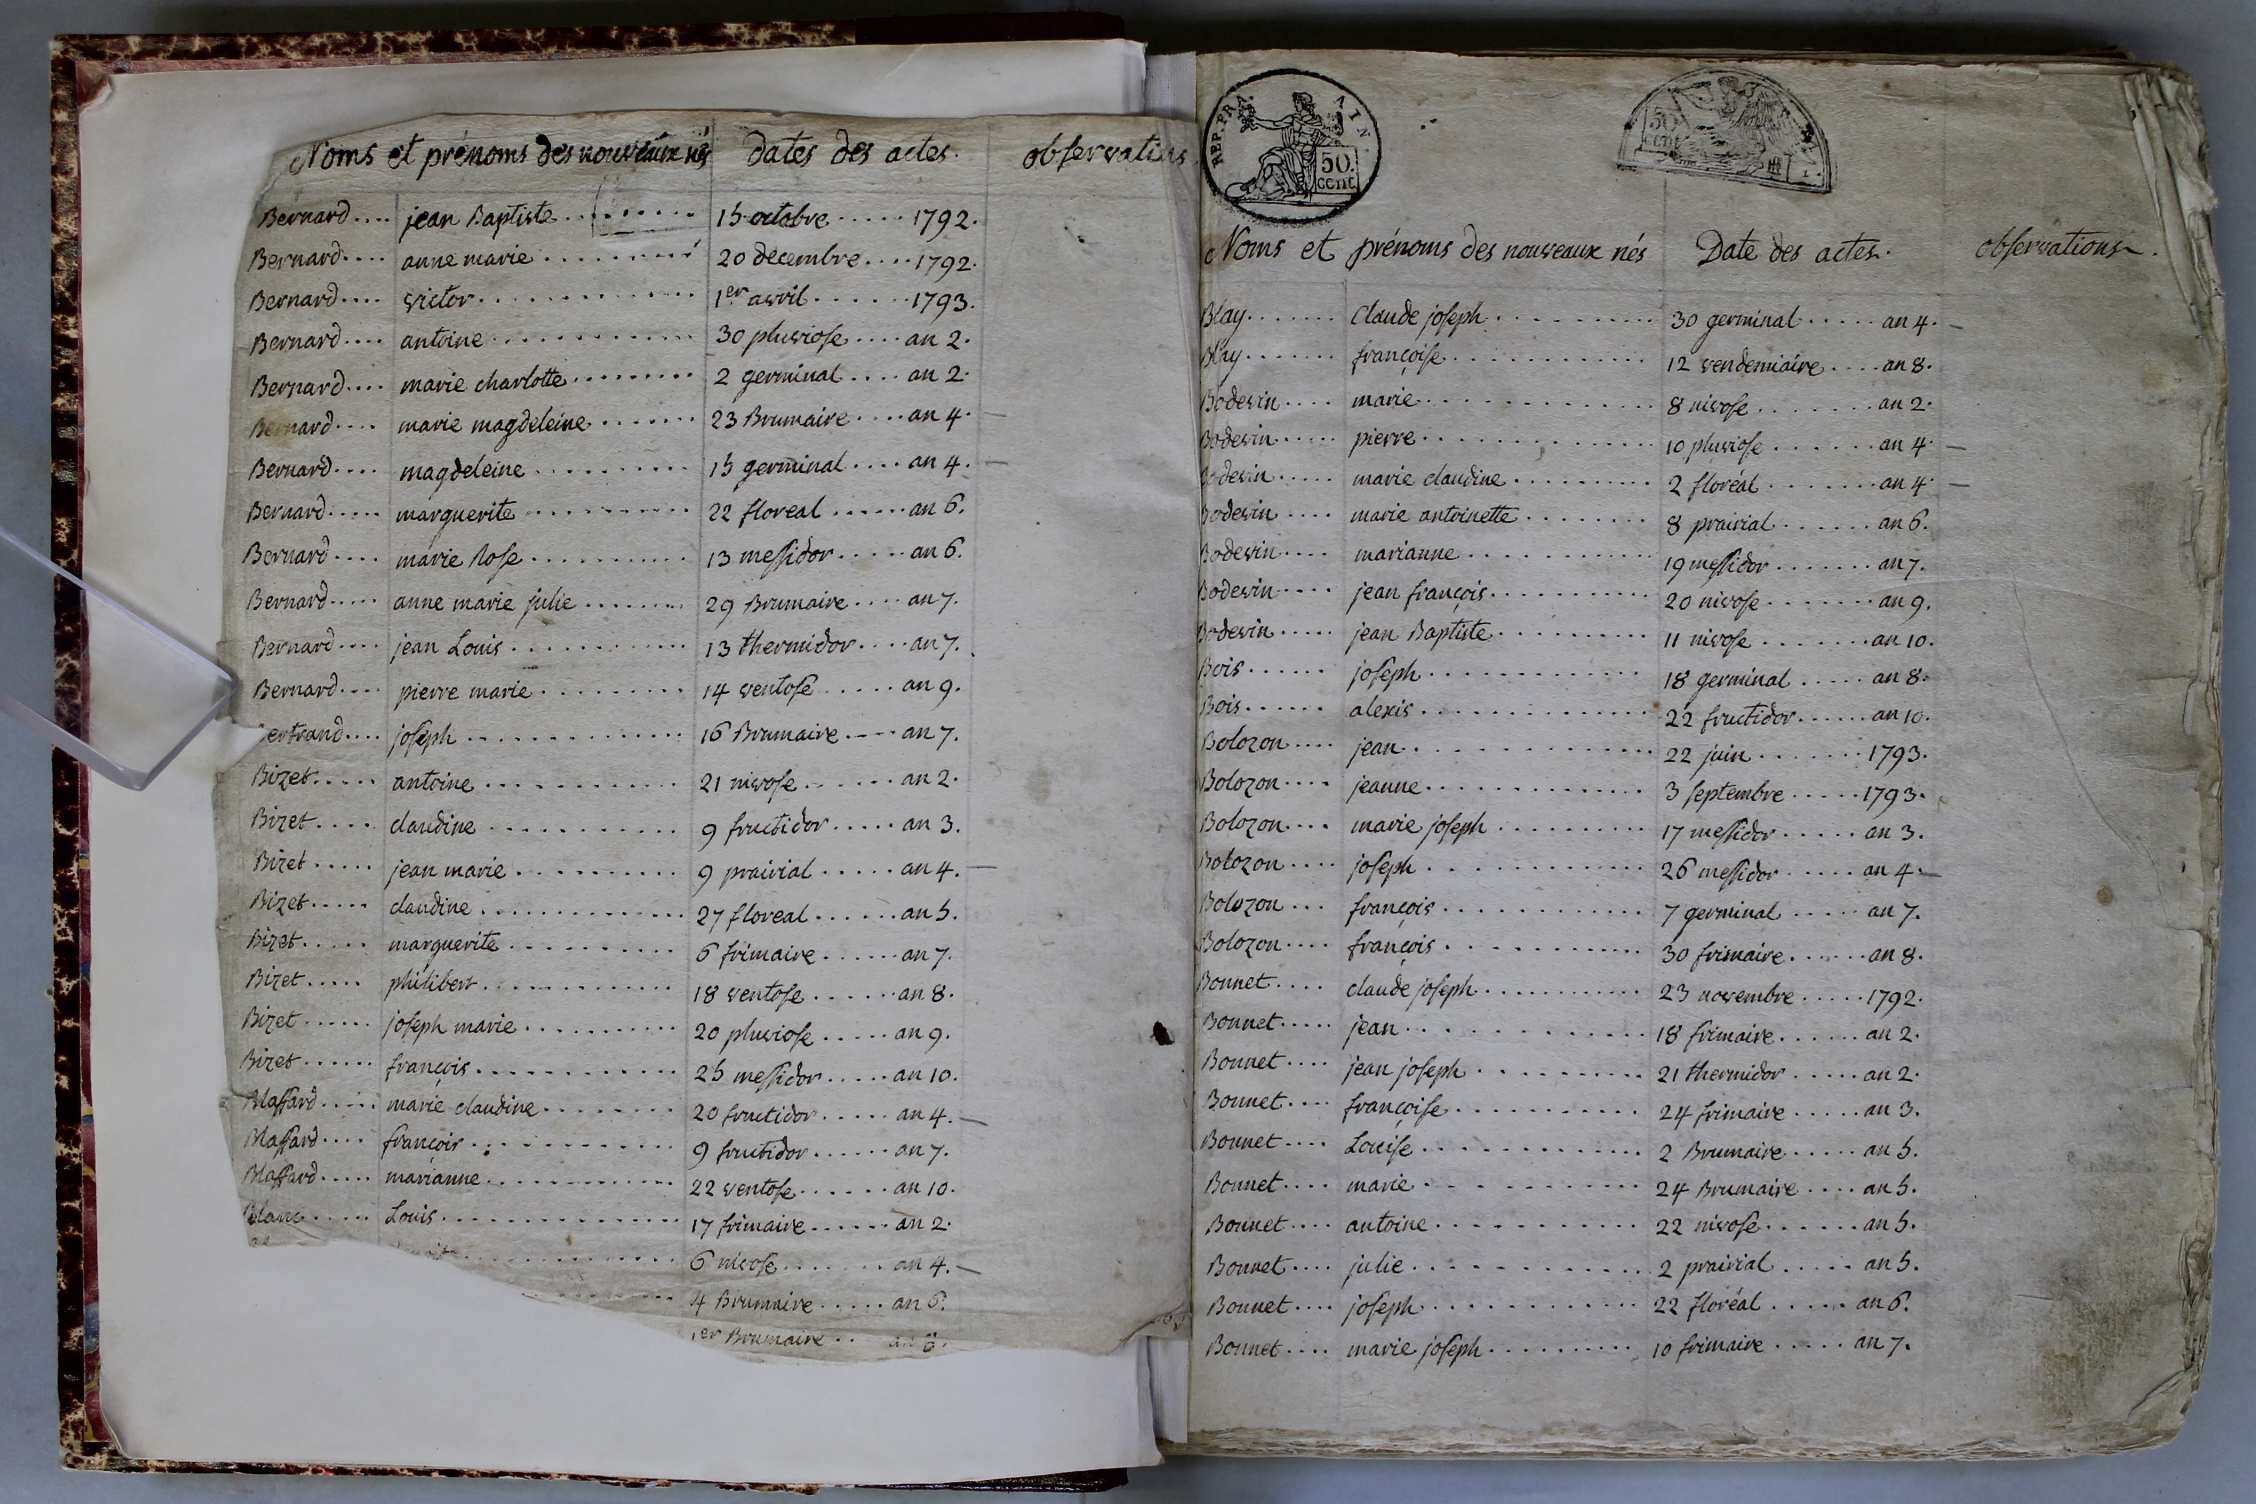 Noms et prénoms des nouveaux nés Dates des actes. observations
Bernard.... jean Baptiste......... 15 octobre..... 1792.
Bernard.... anne marie........ 20 decembre.... 1792.
Bernard.... victor............. 1er avril...... 1793.
Bernard.... antoine............ 30 pluviose.... an 2.
Bernard.... marie charlotte......... 2 germinal.... an 2.
Bernard.... marie magdeleine....... 23 Brumaire.... an 4. —
Bernard.... magdeleine.......... 15 germinal.... an 4. —
Bernard..... marguerite.......... 22 floreal...... an 6.
Bernard.... marie Rose.......... 13 messidor..... an 6.
Bernard..... anne marie julie....... 29 Brumaire.... an 7.
Bernard.... jean Louis........... 13 thermidor.... an 7.
Bernard.... pierre marie......... 14 ventose..... an 9.
Bertrand.... joseph............. 16 Brumaire.... an 7.
Bizet..... antoine............ 21 nivose...... an 2.
Bizet.... claudine........... 9 fructidor..... an 3.
Bizet..... jean marie.......... 9 prairial..... an 4. —
Bizet..... claudine............. 27 floreal...... an 5.
Bizet..... marguerite.......... 6 frimaire...... an 7.
Bizet..... philibert............ 18 ventose...... an 8.
Bizet...... joseph marie.......... 20 pluviose..... an 9.
Bizet...... françois............ 25 messidor..... an 10.
Blassard..... marie claudine........ 20 fructidor..... an 4. —
Blassard.... françois............ 9 fructidor...... an 7.
Blassard..... marianne............ 22 ventose...... an 10.
Blanc..... Louis............... 17 frimaire...... an 2.
6 nivose....... an 4. —
4 Brumaire..... an 6.
1er Brumaire..
REP. FRA.
50.
cent.
50
cent
Noms et prénoms des nouveaux nés Date des actes. observations.
Blay....... Claude joseph.......... 30 germinal..... an 4. —
Blay....... françoise............ 12 vendemiaire.... an 8.
Bodevin.... marie............. 8 nivose....... an 2.
Bodevin..... pierre............. 10 pluviose...... an 4. —
Bodevin..... marie claudine......... 2 floréal....... an 4. —
Bodevin.... marie antoinette........ 8 prairial...... an 6.
Bodevin.... marianne........... 19 messidor....... an 7.
Bodevin.... jean françois.......... 20 nivose....... an 9.
Bodevin..... jean Baptiste.......... 11 nivose....... an 10.
Bois...... joseph............. 18 germinal..... an 8.
Bois...... alexis............. 22 fructidor...... an 10.
Bolozon.... jean............. 22 juin....... 1793.
Bolozon.... jeanne............. 3 septembre..... 1793.
Bolozon.... marie joseph.......... 17 messidor..... an 3.
Bolozon.... joseph............. 26 messidor..... an 4. —
Bolozon... françois............ 7 germinal..... an 7.
Bolozon.... françois............ 30 frimaire...... an 8.
Bonnet.... claude joseph........... 23 novembre..... 1792.
Bonnet..... jean............. 18 frimaire...... an 2.
Bonnet.... jean joseph.......... 21 thermidor..... an 2.
Bonnet.... françoise........... 24 frimaire..... an 3.
Bonnet.... Louise............. 2 Brumaire..... an 5.
Bonnet.... marie............ 24 Brumaire.... an 5.
Bonnet.... antoine............ 22 nivose...... an 5.
Bonnet.... julie............. 2 prairial..... an 5.
Bonnet.... joseph............ 22 floréal..... an 6.
Bonnet.... marie joseph.......... 10 frimaire..... an 7.